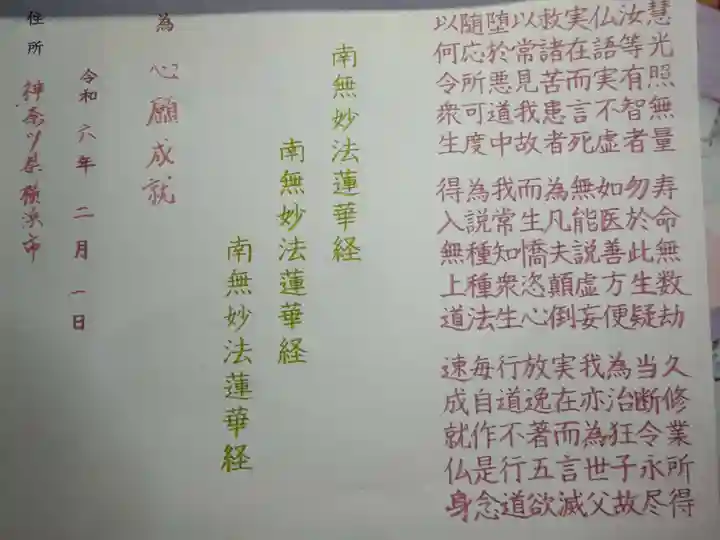 慧光照無量 寿命無数劫 久修業所得
汝等有智者 勿於此生疑 当断令永尽
仏語実不虚 如医善方便 為治狂子故
実在而言死 無能説虚妄 我亦為世父
救諸苦患者 為凡夫顛倒 実在而言滅
以常見我故 而生憍恣心 放逸著五欲
堕於悪道中 我常知衆生 行道不行道
随応所可度 為説種種法 毎自作是念
以何令衆生 得入無上道 速成就仏身
南無妙法蓮華経
南無妙法蓮華経
南無妙法蓮華経
為 心願成就
令和六年二月一日
住所 神奈川県横浜市